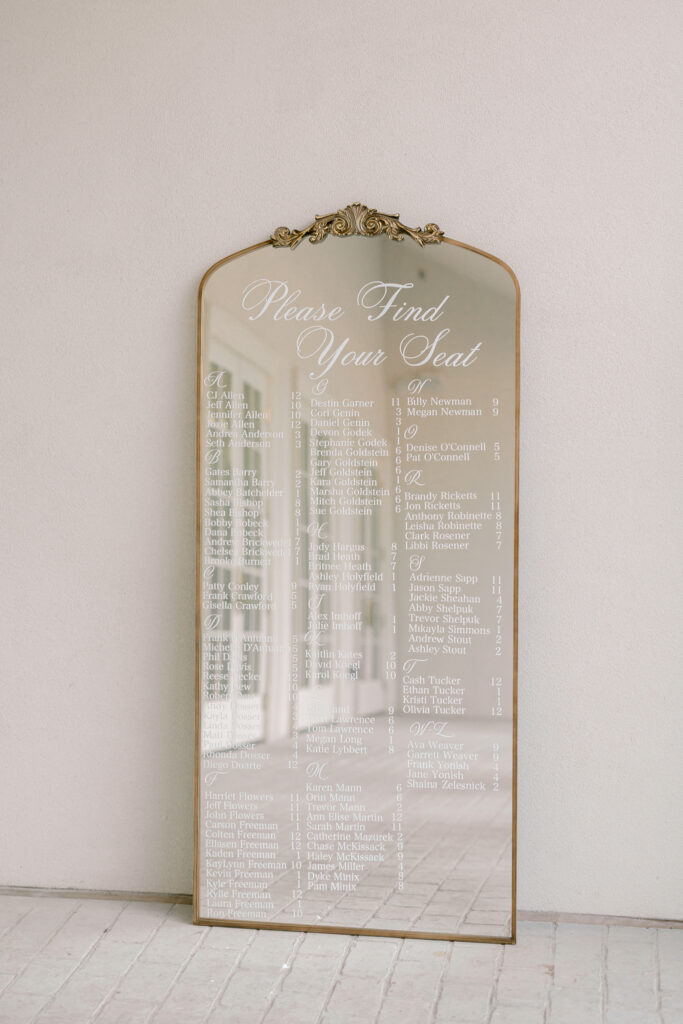 Please Find
Your Seat
A
CJ Allen 12
Jeff Allen 10
Jennifer Allen 10
Josie Allen 12
Andrea Anderson 3
Seth Anderson 3
B
Gates Barry 2
Samantha Barry 2
Abbey Batchelder 1
Sasha Bishop 8
Shea Bishop 8
Bobby Bobeck 1
Dana Bobeck 1
Andrew Brickwedel 7
Chelsey Brickwedel 7
Brooke Burnett 1
C
Patty Conley 9
Frank Crawford 5
Gisella Crawford 5
D
Frank D'Antuan 5
Michele D'Antuan 5
Phil Davis 5
Rose Davis 5
Reese Decker 2
Kathy Dew 10
Robert 10
Kayla Dosser
Linda Dosser
Matt
Dosser
Rhonda Dosser 4
Diego Duarte 12
F
Harriet Flowers 11
Jeff Flowers 11
John Flowers 11
Carson Freeman 1
Colten Freeman 12
Ellasen Freeman 12
Kaden Freeman 1
KayLynn Freeman 10
Kevin Freeman 1
Kyle Freeman 1
Kylie Freeman 12
Laura Freeman 1
Ron Freeman 10
G
Destin Garner 11
Cori Genin 3
Daniel Genin 3
Devon Godek 1
Stephanie Godek 1
Brenda Goldstein 6
Gary Goldstein 6
Jeff Goldstein 6
Kara Goldstein 1
Marsha Goldstein 6
Mitch Goldstein 6
Sue Goldstein 6
H
Jody Hargus 8
Brad Heath 7
Britnee Heath 7
Ashley Holyfield 1
Ryan Holyfield 1
I
Alex Imhoff 1
Julie Imhoff 1
K
Kaitlin Kates 2
David Koegl 10
Karol Koegl 10
9
Lawrence 6
Tom Lawrence 6
Megan Long 1
Katie Lybbert 8
M
Karen Mann 6
Orin Mann 6
Trevor Mann 2
Ann Elise Martin 12
Sarah Martin 11
Catherine Mazurek 2
Chase McKissack 9
Haley McKissack 9
James Miller 4
Dyke Minix 8
Pam Minix 8
N
Billy Newman 9
Megan Newman 9
O
Denise O'Connell 5
Pat O'Connell 5
R
Brandy Ricketts 11
Jon Ricketts 11
Anthony Robinette 8
Leisha Robinette 8
Clark Rosener 7
Libbi Rosener 7
S
Adrienne Sapp 11
Jason Sapp 11
Jackie Sheahan 4
Abby Shelpuk 7
Trevor Shelpuk 7
Mikayla Simmons 1
Andrew Stout 2
Ashley Stout 2
T
Cash Tucker 12
Ethan Tucker 1
Kristi Tucker 1
Olivia Tucker 12
WZ
Ava Weaver 9
Garrett Weaver 9
Frank Yonish 4
Jane Yonish 4
Shaina Zelesnick 2